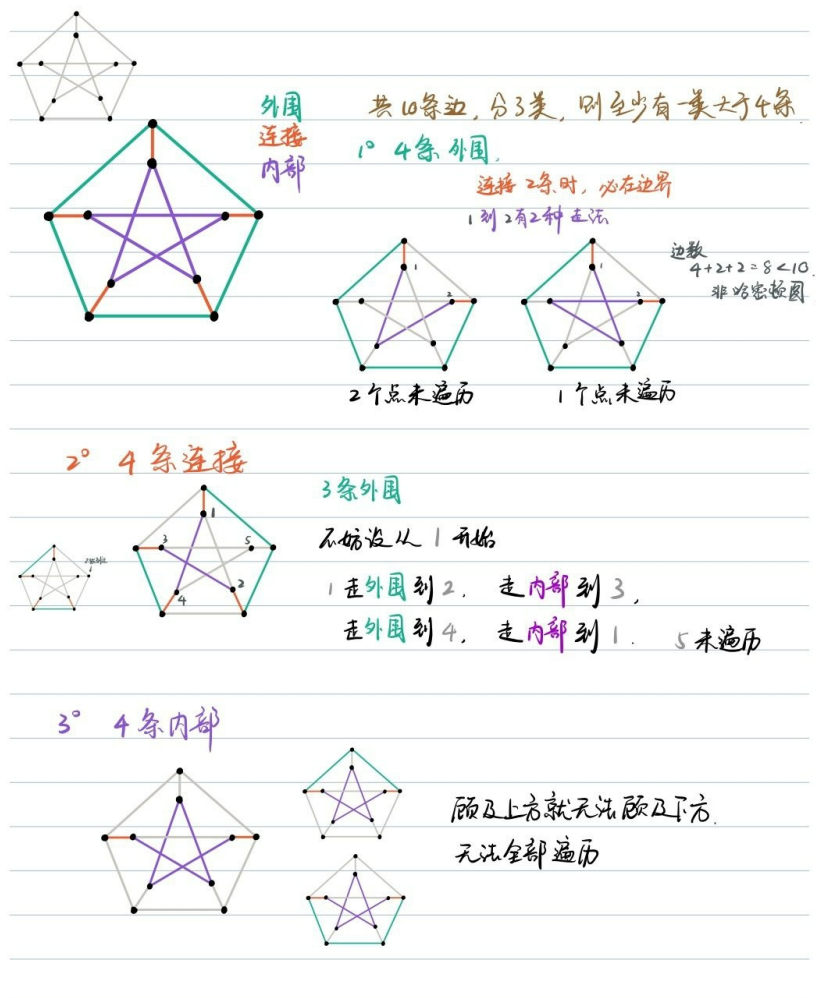 外围
连接
内部
共10条边，分3类，则至少有一类大于4条.
1° 4条外围.
连接2条时，必在边界
1到2有2种走法
边数
4+2+2=8<10.
非哈密顿图
1
2
1
2
2个点未遍历
1个点未遍历
2° 4条连接
3条外围
1
3
5
2
4
不妨设从1开始
1走外围到2. 走内部到3,
走外围到4, 走内部到1. 5未遍历
3° 4条内部
顾及上方就无法顾及下方.
无法全部遍历